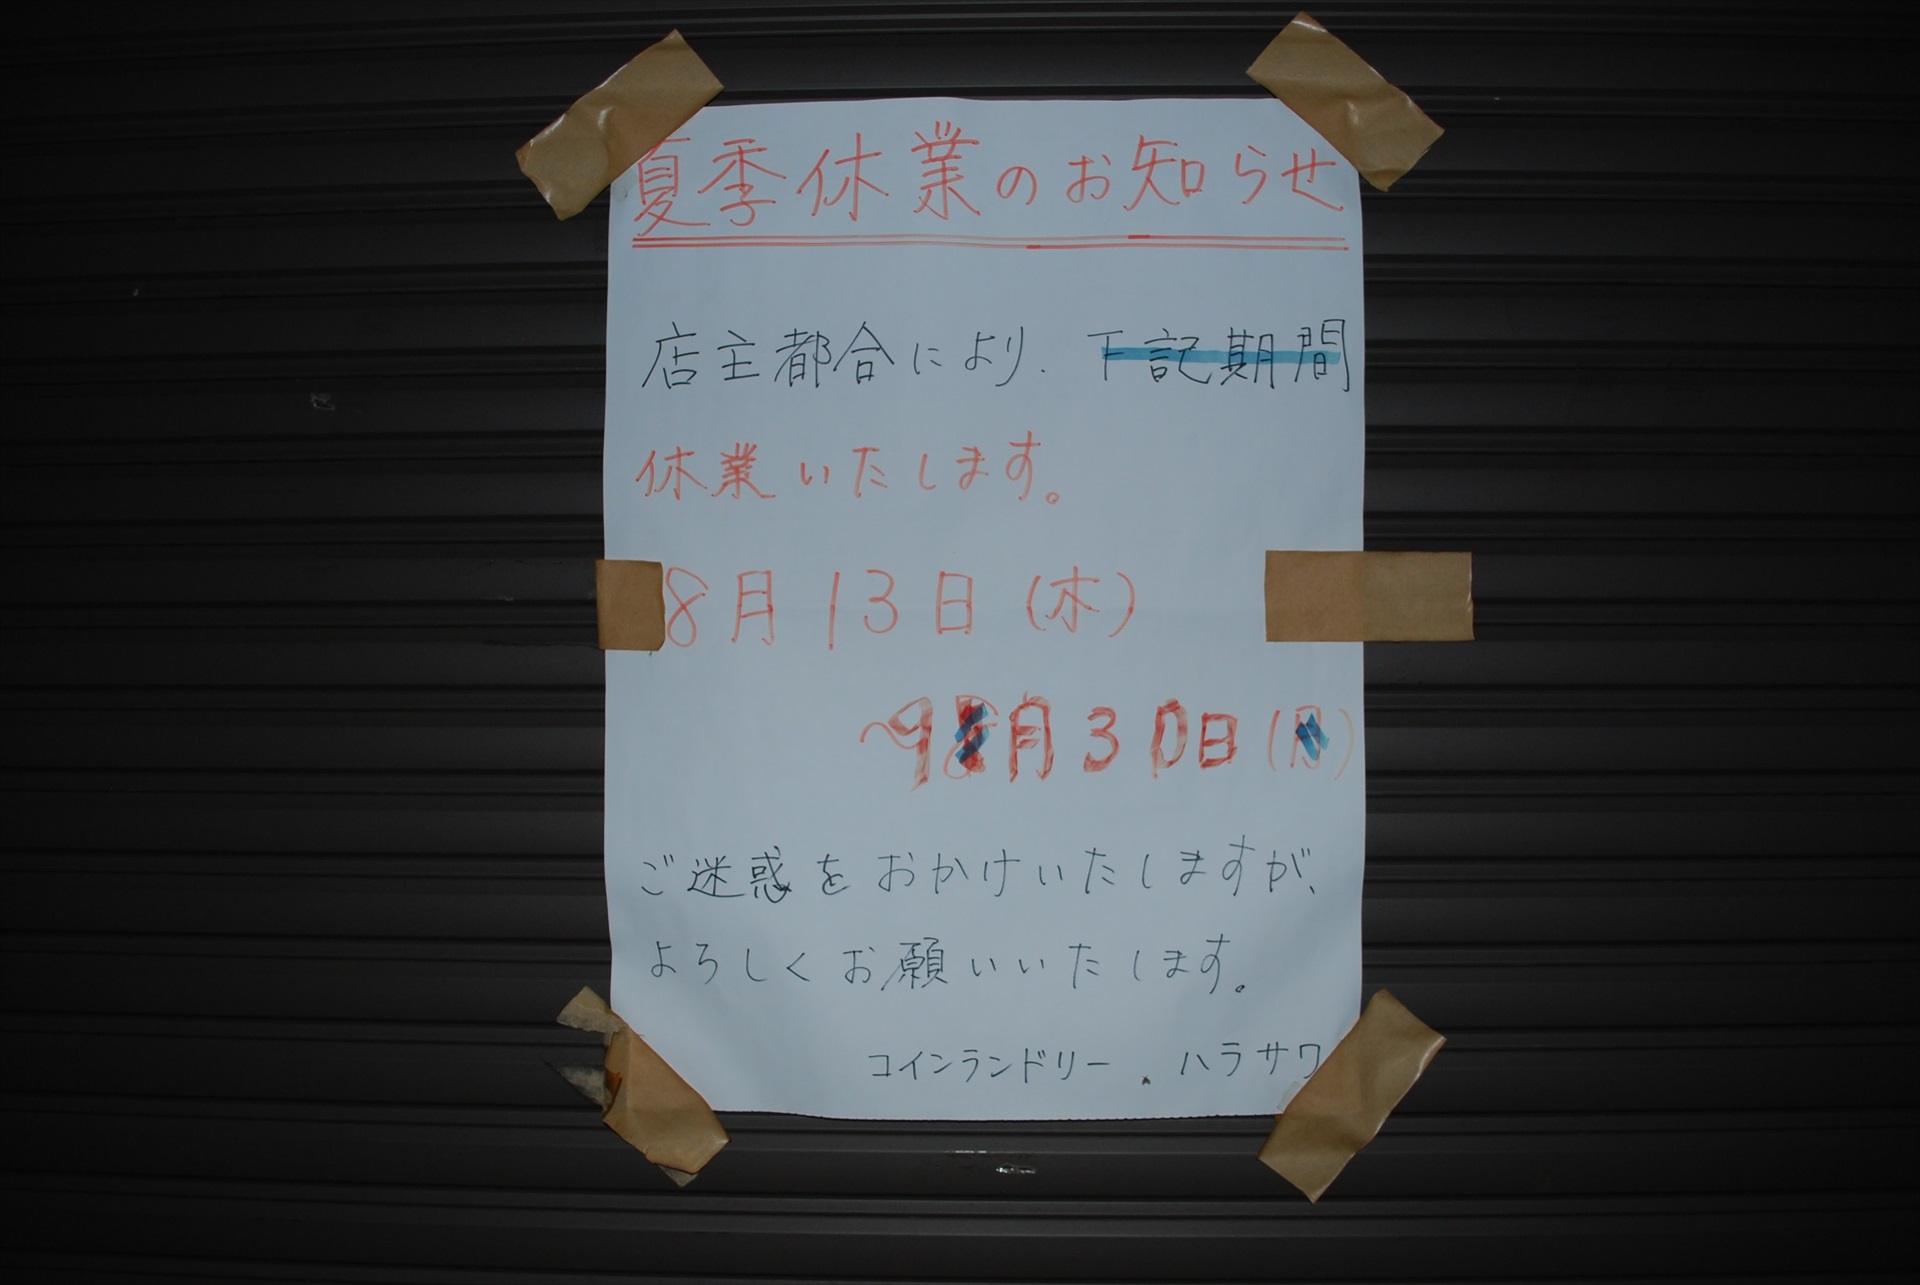 夏季休業のお知らせ
店主都合により、下記期間
休業いたします。
8月13日(木)
～9月30日( )
ご迷惑をおかけいたしますが、
よろしくお願いいたします。
コインランドリー ハラサワ